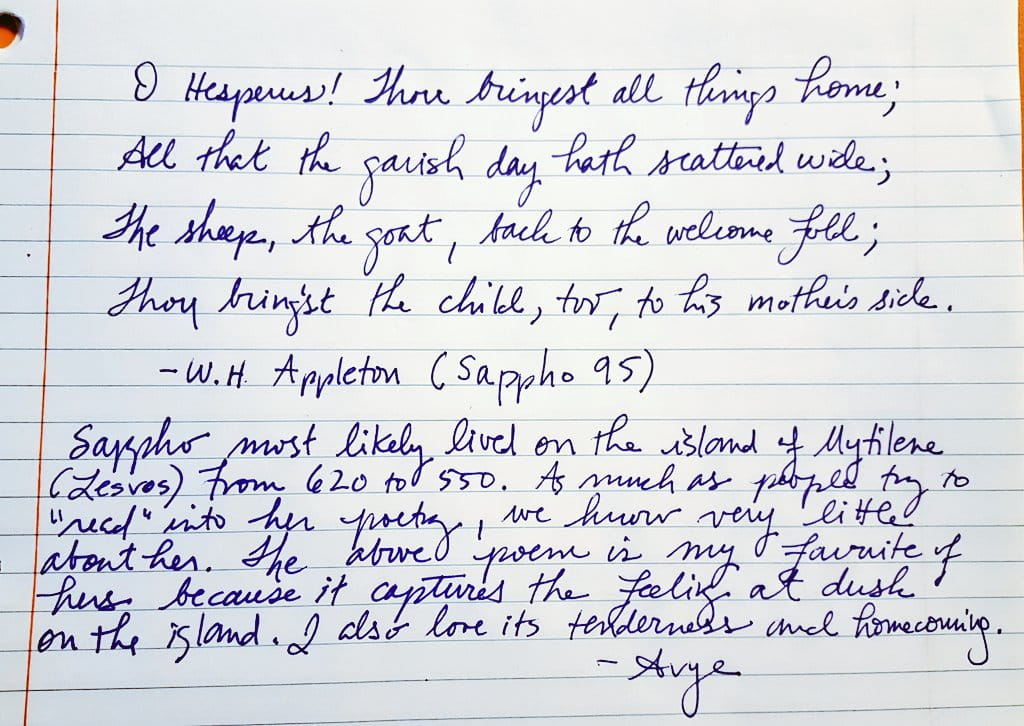 O Hesperus! Thou bringest all things home;
All that the garish day hath scattered wide;
The sheep, the goat, back to the welcome fold;
Thou bring'st the child, too, to his mother's side.
- W. H. Appleton (Sappho 95)
Sappho most likely lived on the island of Mytilene
(Lesvos) from 620 to 550. As much as people try to
"read" into her poetry, we know very little
about her. The above poem is my favorite of
hers because it captures the feeling at dusk
on the island. I also love its tenderness and homecoming.
- Avye